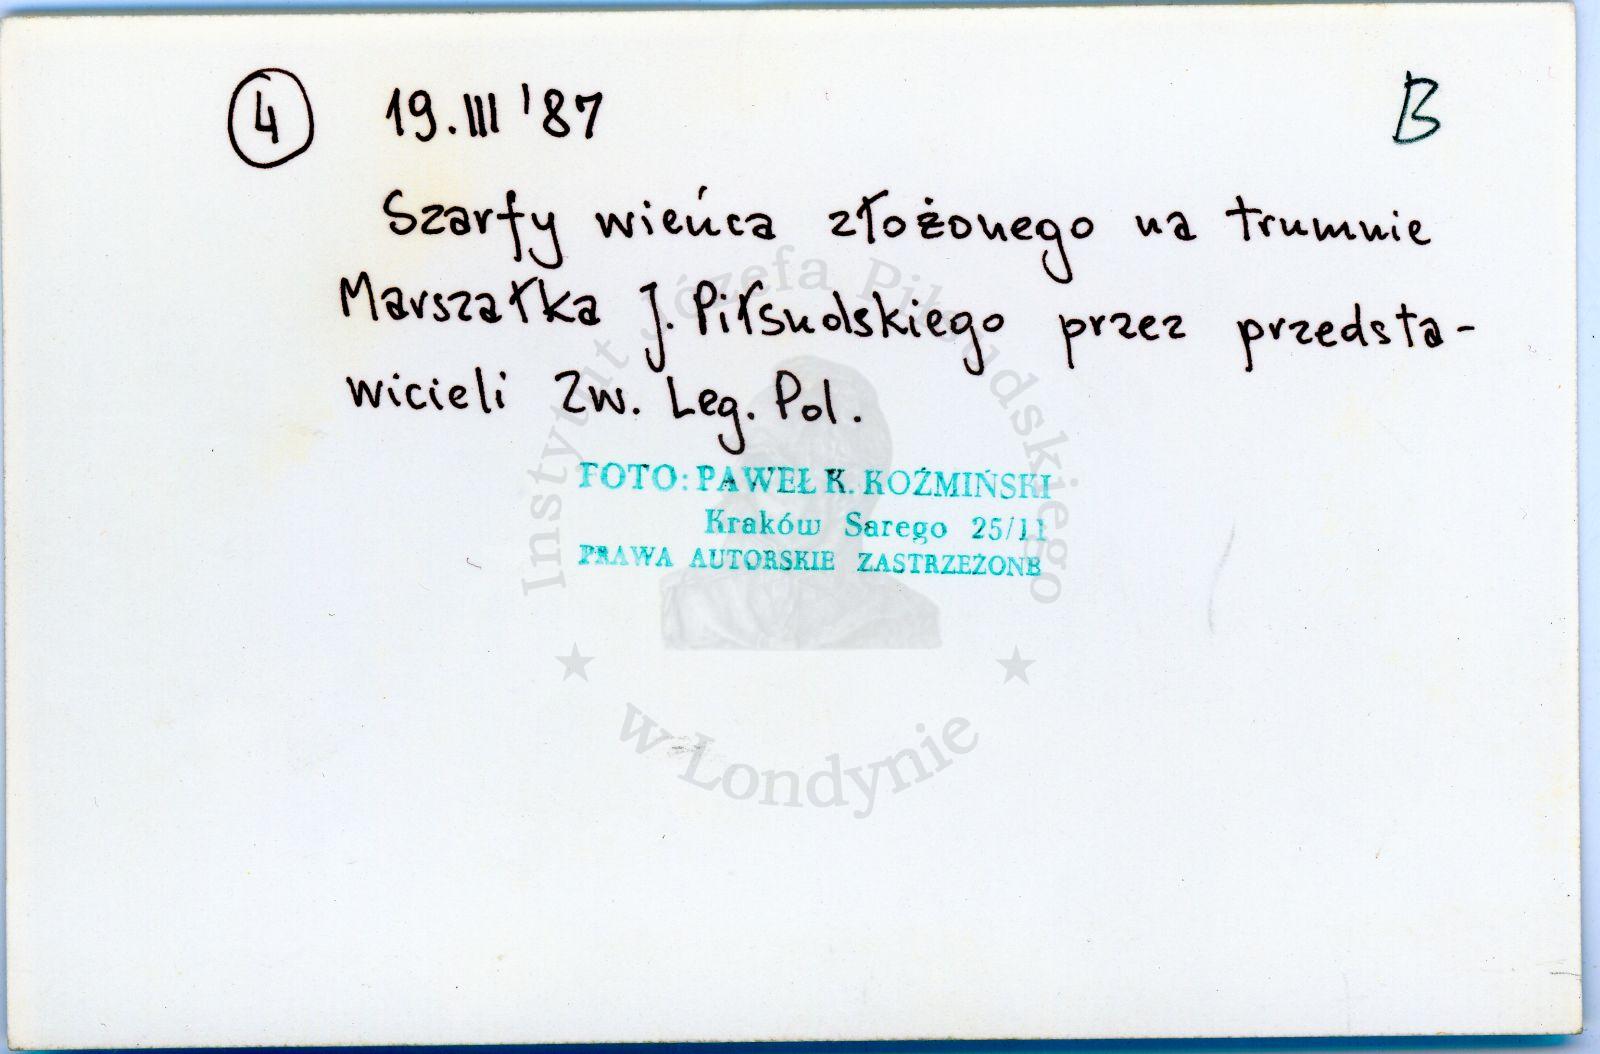 4 19.III '87 B
Szarfy wieńca złożonego na trumnie
Marszałka J. Piłsudskiego przez przedsta-
wicieli Zw. Leg. Pol.
FOTO: PAWEŁ K. KOŹMIŃSKI
Kraków Sarego 25/11
PRAWA AUTORSKIE ZASTRZEŻONE
Instytut Józefa Piłsudskiego
w Londynie